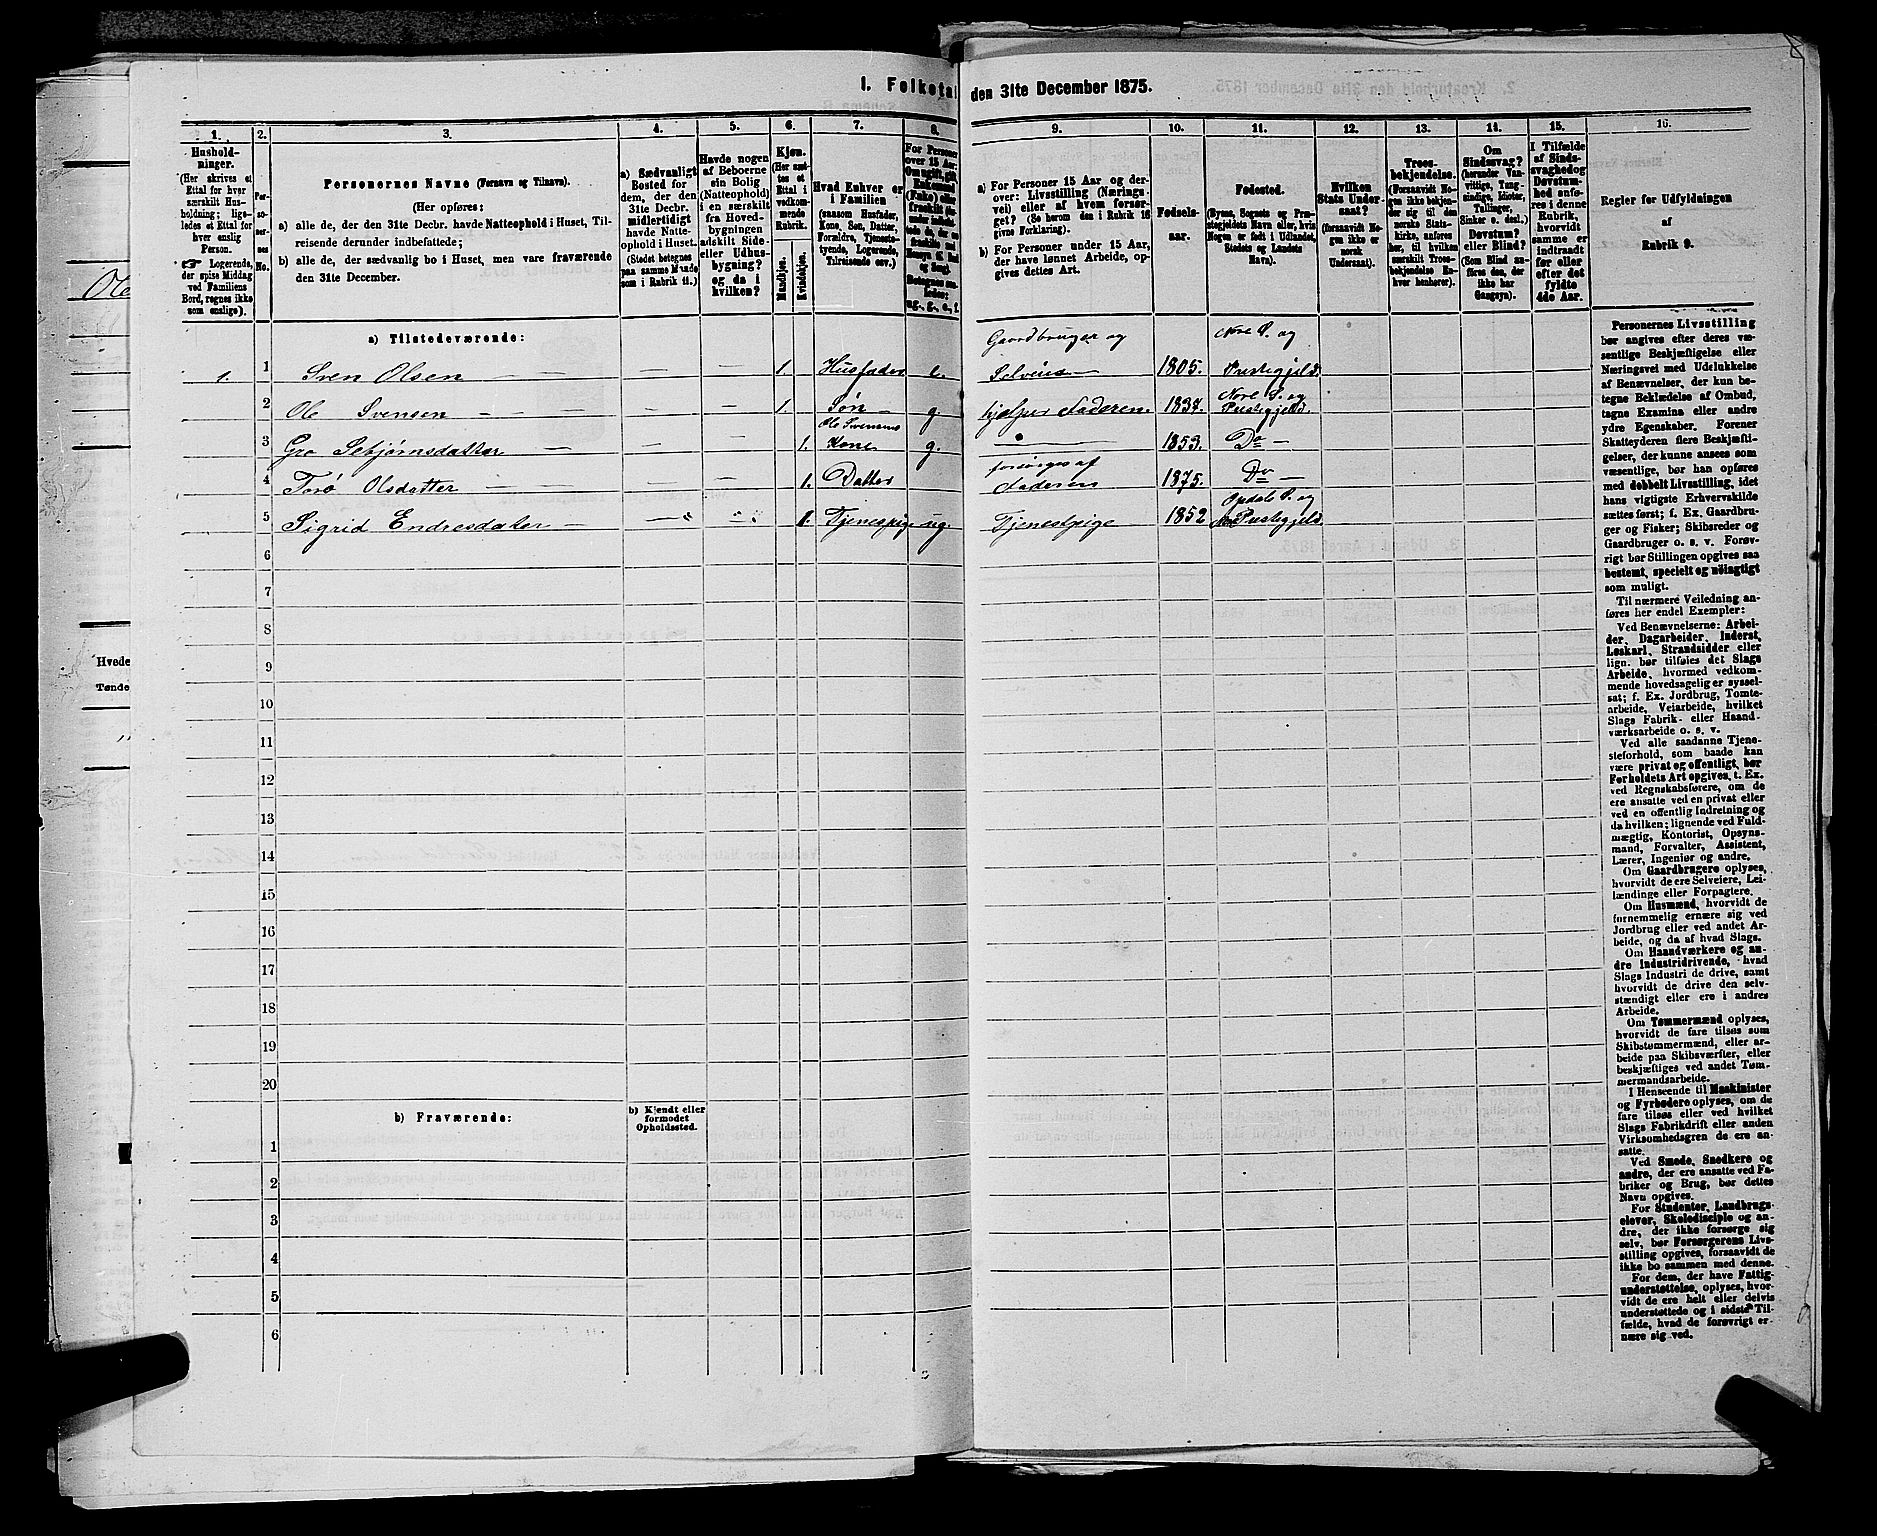 1. Folketal
den 31te December 1875.
1. 2. 3. 4. 5. 6. 7. 8. 9. 10. 11. 12. 13. 14. 15. 16.
Hushold-
ninger.
(Her skrives et
Ettal for hver
særskilt Hus-
holdning; lige-
ledes et Ettal for
hver enslig
Person.
☞ Logerende,
der spise Middag
ved Familiens
Bord, regnes ikke
som enslige).
Per-
so-
ner-
nes
No.
Personernes Navne (Fornavn og Tilnavn).
(Her opføres:
a) alle de, der den 31te Decbr. havde Natteophold i Huset, Til-
reisende derunder indbefattede;
b) alle de, der sædvanlig bo i Huset, men vare fraværende
den 31te December.
a) Sædvanligt
Bosted for
dem, der den
31te Decbr.
midlertidigt
havde Natte-
ophold i Huset.
(Stedet betegnes
paa samme Maade
som i Rubrik 11.)
Havde nogen
af Beboerne
ein Bolig
(Natteophold)
i en særskilt
fra Hoved-
bygningen
adskilt Side-
eller Udhus-
bygning?
og da i
hvilken?
Kjøn.
(Her sæt-
tes et
Ettal i
vedkom-
mende
Rubrik.
Mandkjøn.
Kvindekjøn.
Hvad Enhver er
i Familien
(saasom Husfader,
Kone, Søn, Datter,
Forældre, Tjeneste-
tyende, Logerende,
Tilreisende osv.)
For Personer
over 15 Aar
ug., g., e., f.
a) For Personer 15 Aar og der-
over: Livsstilling (Nærings-
vei) eller af hvem forsør-
get? (Se herom den i Rubrik 16
givne Forklaring).
b) For Personer under 15 Aar,
der have lønnet Arbeide, op-
gives dettes Art.
Fødsels-
aar.
Fødested.
(Byens, Sognets og Præ-
stegjeldets Navn eller, hvis
Nogen er født i Udlandet,
Stedets og Landets
Navn).
Hvilken
Stats Under-
saat?
(foruanvidt No-
gen ikke er
norsk
Undersaat).
Troes-
bekjendelse.
(Forsaavidt No-
gen ikke bekjen-
der sig til den
norske Stats-
kirke, anføres
her, til hvilken
særskilt Troes-
bekjendelse En-
hver henhører).
Om
Sindssvag?
(herunder Van-
vittige, Tung-
sindige, Idioter,
Tullinger,
Sinker o. desl.)
Døvstum?
eller Blind?
(Som Blind an-
føres den, der
ikke har
Gangsyn).
I Tilfælde
af Sinds-
svaghed og
Døvstum-
hed anfø-
res i denne
Rubrik,
hvorvidt
samme er
indtraadt
før eller
efter det
fyldte
4de Aar.
Regler for Udfyldningen
af
Rubrik 9.
a) Tilstedeværende:
1. 1 Sven Olsen — — 1. Husfader e. Gaardbruger og Selveier 1805. Nore S. og Prestegjeld.
2 Ole Svensen — — 1. Søn g. hjelper Faderen. 1837. Nore S. og Prestegjeld.
3 Gro Sebjørnsdatter — — 1. Ole Svensens Kone g. — 1853. Do —
4 Torø Olsdatter — — 1. Datter forsørges af Faderen 1875. Do —
5 Sigrid Endresdatter — — 1. Tjenestpige ug. Tjenestpige 1852 Opdals S. og Nore Prestegjeld.
6
7
8
9
10
11
12
13
14
15
16
17
18
19
20
b) Fraværende:
b) Kjendt eller
formodet
Opholdssted.
1
2
3
4
5
6
Personernes Livsstilling
bør angives efter deres væ-
sentlige Beskjæftigelse eller
Næringsvei med Udelukkelse
af Benævnelser, der kun be-
tegne Beklædelse af Ombud,
tagne Examina eller andre
ydre Egenskaber. Forener
Skatteyderen flere Beskjæfti-
gelser, der kunne ansees som
væsentlige, bør han opføres
med dobbelt Livsstilling, idet
hans vigtigste Erhvervskilde
sættes først; f. Ex. Gaardbru-
ger og Fisker; Skibsreder og
Gaardbruger o. s. v. Forøv-
rigt bør Stillingen opgives saa
bestemt, specielt og nøiagtigt
som muligt.
Til nærmere Veiledning an-
føres her endel Exempler:
Ved Benævnelserne: Arbei-
der, Dagarbeider, Inderst,
Løskarl, Strandsidder eller
lign. bør tilføies det Slags
Arbeide, hvormed vedkom-
mende hovedsagelig er syssel-
sat; f. Ex. Jordbrug, Tomte-
arbeide, Veiarbeide, hvilket
Slags Fabrik- eller Haand-
værksarbeide o. s. v.
Ved alle saadanne Tjene-
steforhold, som baade kan
være privat og offentligt, bør
Forholdets Art opgives, t. Ex.
ved Regnskabsførere, om de
ere ansatte ved en privat eller
ved en offentlig Indretning og
da hvilken; lignende ved Fuld-
mægtig, Kontorist, Opsyns-
mand, Forvalter, Assistent,
Lærer, Ingeniør og andre.
Om Gaardbrugere oplyses,
hvorvidt de ere Selveiere, Lei-
lændinge eller Forpagtere.
Om Husmænd, hvorvidt de
fornemmelig ernære sig ved
Jordbrug eller ved andet Ar-
beide, og da af hvad Slags.
Om Haandværkere og an-
dre Industridrivende, hvad
Slags Industri de drive, samt
hvorvidt de drive den selv-
stændigt eller ere i andres
Arbeide.
Om Tømmermænd oplyses,
hvorvidt de fare tilsøs som
Skibstømmermænd, eller ar-
beide paa Skibsværfter, eller
beskjæftiges ved andet Tøm-
mermandsarbeide.
I Henseende til Maskinister
og Fyrbødere oplyses, om de
fare tilsøs eller ved hvilket
Slags Fabrikdrift eller anden
Virksomhedsgren de ere an-
satte.
Ved Smede, Snedkere og
andre, der ere ansatte ved Fa-
briker og Brug, bør dettes
Navn opgives.
For Studenter, Landbrugs-
elever, Skoledisciple og an-
dre, der ikke forsørge sig
selv, bør Forsørgerens Livs-
stilling opgives, forsaavidt de
ikke bo sammen med denne.
For dem, der have Fattig-
understøttelse, oplyses, hvor-
vidt de ere helt eller delvis
understøttede og i sidste Til-
fælde, hvad de forøvrigt er-
nære sig ved.
Ole
Hvede
Tønde